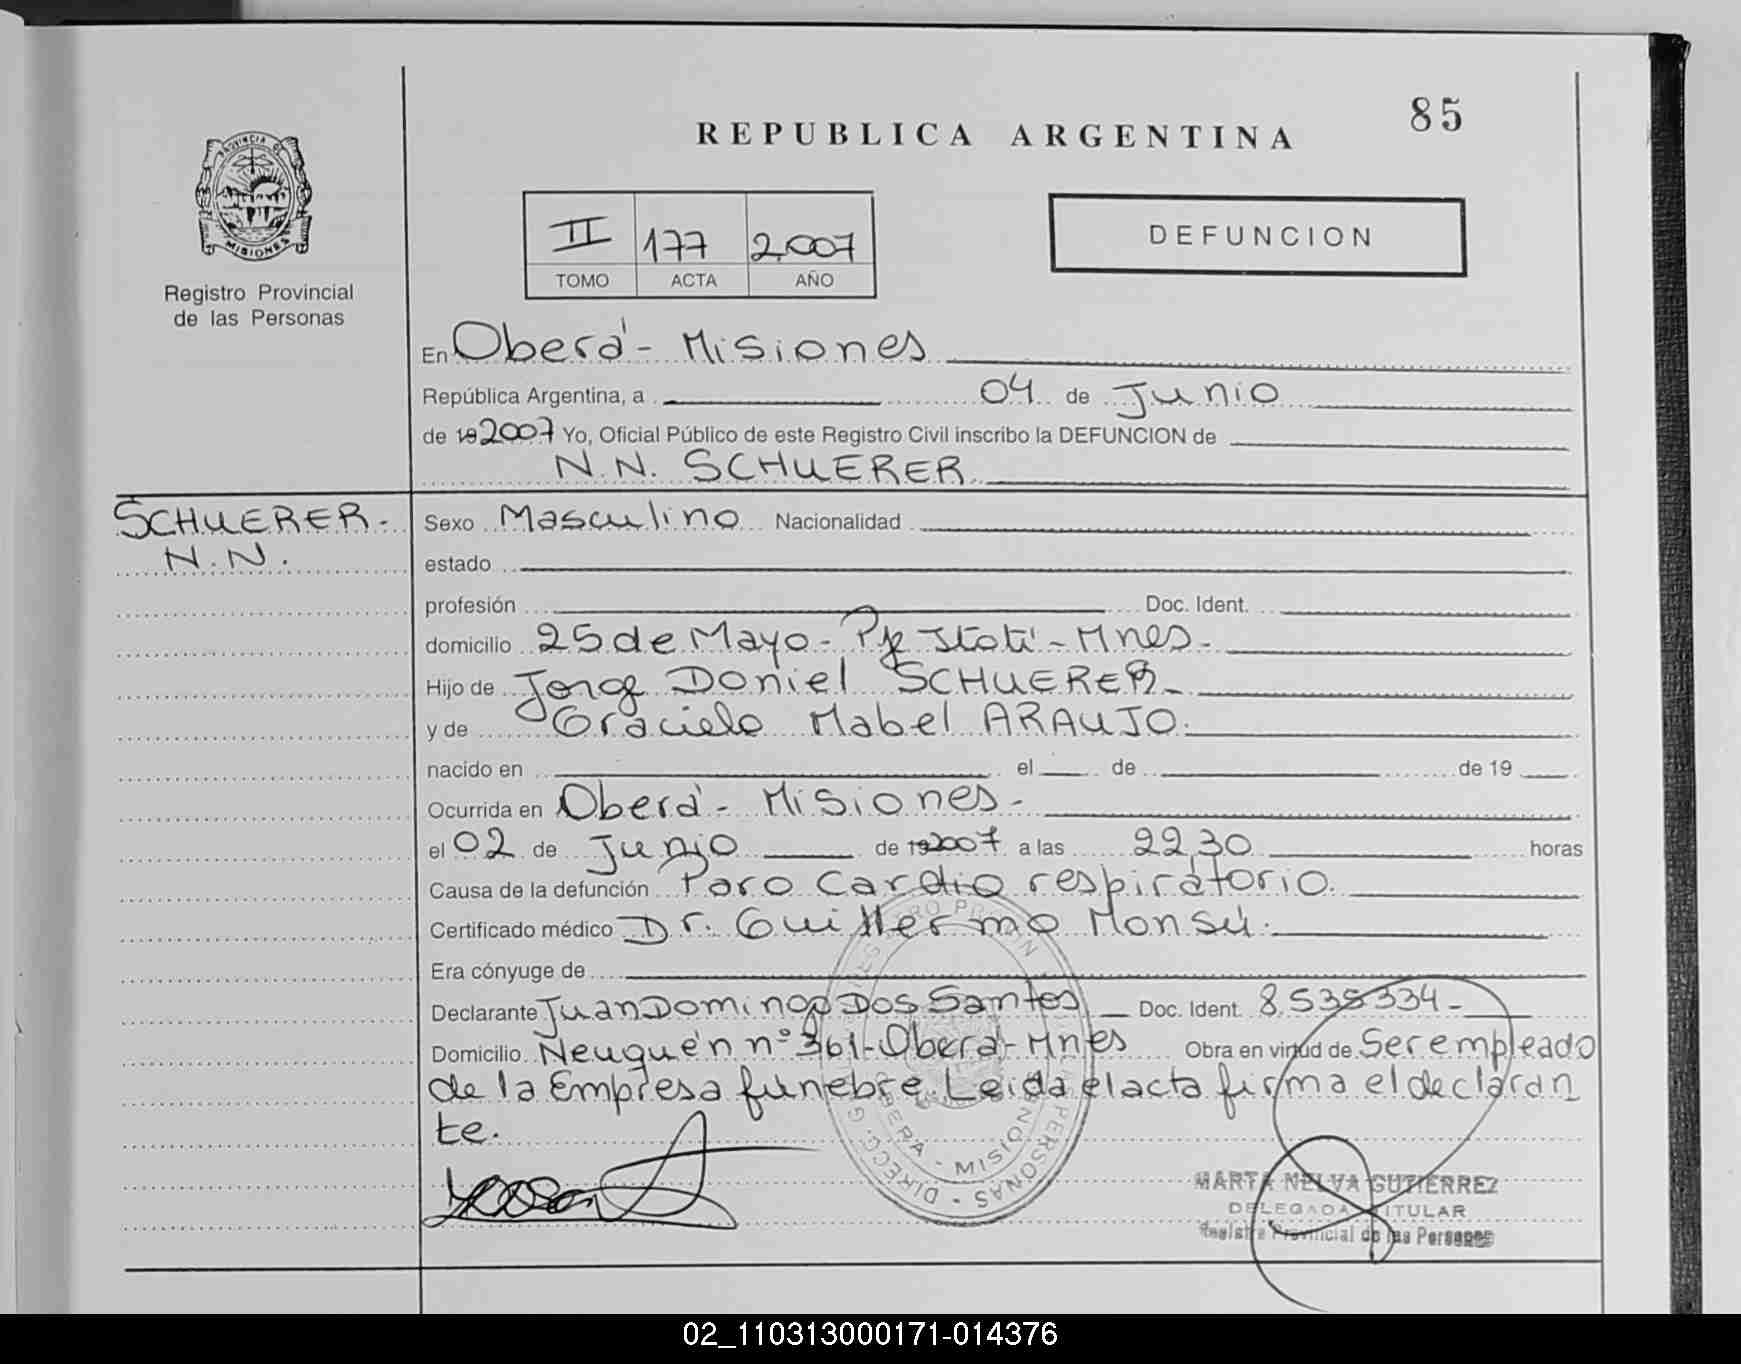 85
REPUBLICA ARGENTINA
PROVINCIA DE
MISIONES
Registro Provincial
de las Personas
II 177 2.007
TOMO ACTA AÑO
DEFUNCION
En Oberá - Misiones
República Argentina, a 04 de Junio
de 19 2007 Yo, Oficial Público de este Registro Civil inscribo la DEFUNCION de
N.N. SCHUERER
SCHUERER -
N.N.
Sexo Masculino Nacionalidad
estado
profesión Doc. Ident.
domicilio 25 de Mayo - Pje Itatí - Mnes -
Hijo de Jorge Daniel SCHUERER -
y de Graciela Mabel ARAUJO.
nacido en el de de 19
Ocurrida en Oberá - Misiones -
el 02 de Junio de 19 2007 a las 22,30 horas
Causa de la defunción Paro Cardio respiratorio.
Certificado médico Dr. Guillermo Monsú.
Era cónyuge de
Declarante Juan Domingo Dos Santos Doc. Ident. 8.535334 -
Domicilio Neuquén nº 361 - Oberá - Mnes Obra en virtud de Ser empleado
de la Empresa fúnebre Leída el acta firma el declaran
te.
OBERA - MISIONES
MARTA NELVA GUTIERREZ
DELEGADA TITULAR
Registro Provincial de las Personas
02_110313000171-014376